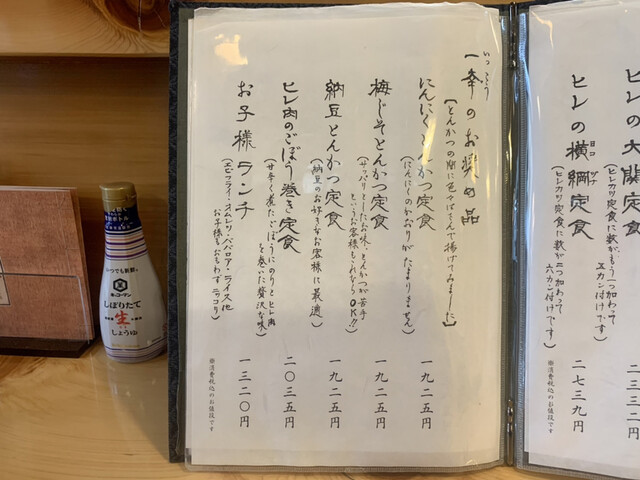 ヒレの大関定食
(ヒレカツ定食に数がもう一つ加わって
五カン付けです)
ヒレの横綱定食
ヨコ
ヅナ
(ヒレカツ定食に数が二つ加わって
六カン付けです)
二七三九円
※消費税込のお値段です
いっこう
一幸のお奨め品
【とんかつの間に色々はさんで揚げてみました】
にんにくとんかつ定食
(にんにくのかおりがたまりません)
一九二五円
梅じそとんかつ定食
(サッパリとしたお味、とんかつが苦手
というお客様もこれならOK!!)
一九二五円
納豆とんかつ定食
(納豆のお好きなお客様に最適)
一九二五円
ヒレ肉のごぼう巻き定食
(甘辛く煮たごぼうにのりとヒレ肉
を巻いた贅沢な味)
二〇三五円
お子様ランチ
(エビフライ・オムレツ・ババロア・ライス他
お子様もおもわずニッコリ)
一三二〇円
※消費税込のお値段です
いつでも新鮮
キッコーマン
しぼりたて
生
しょうゆ